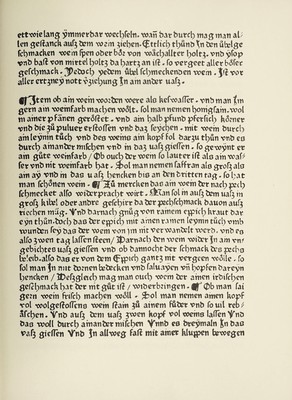 ettwielang ymmerdar wechseln. wañ dar durch mag man al
len gestanck auß dem wein ziehen. Ettlich thünd In den übelge
schmackẽ wein speñ oder bör võ wachallter holtz. vnd ysop
vnd bast von mirtel holtz da hartz an ist. so vergeet aller böser
geschmack. Yedoch yedem übel schmeckenden wein. Ist vor
aller ertzney nott yziehung In am ander vaß.
Item ob ain wein worden were als keßwasser. vnd man Im
gern am weinfarb machen wölt. sol man nemen honigsaim. wol
in ainer pfannen geröstet. vnd ain halb pfund pferlich körner
vnd die zü puluer erstossen vnd das seyhen. mit wein durch
am leynin tüch vnd des weins am kopf vol darzü thün vnd es
durch ainander mischen vnd in daz vaß giessen. so gewynt er
am güte weinfarb / Ob ouch der wein so lauter ist als ain was/
ser vnd nit weinfarb hat. Sol man nemen saffran als groß als
ain ay vnd in das vaß hencken bis an den dritten tag. so hat
man schönen wein. Zü mercken das ain wein der nach pech
schmeckt also widerpracht wirt. Man sol in auß dem vaß in
groß kibel oder andre geschirr da der pechschmack dauon auß
riechen müg. Vnd darnach gnüg von ramem eppich kraut dar
ein thün. doch das der eppich mit ainem ramen leynin tüch vmb
wunden sey das der wein von im nit verwandelt werd. vnd es
also zwen tag lassen steen / Darnach den wein wider In am vn/
gebichtes vaß giessen vnd ob dannocht der schmack des pechs
bleib. also das er von dem Eppich gantz mit vergeen wölle. so
sol man In mit dornen bedecken vnd saluayen vñ hopffen dareyn
hencken / Deßgleich mag man ouch wein der ainen irdischen
geschmack hat der mit güt ist / widerbringen. Ob man sai
gern wein frisch machen wöll. Sol man nemen amen kopf
vol wolgestossens wein stain zü ainem füder vnd so uil reb/
äschen. Vnd auß dem vaß zwen kopf vol weins lassen Vnd
das woll durch ainander mischen Vnnd es dreymaln In das
vaß giessen Vnd In allweg fast mit amer kluppen bewegen